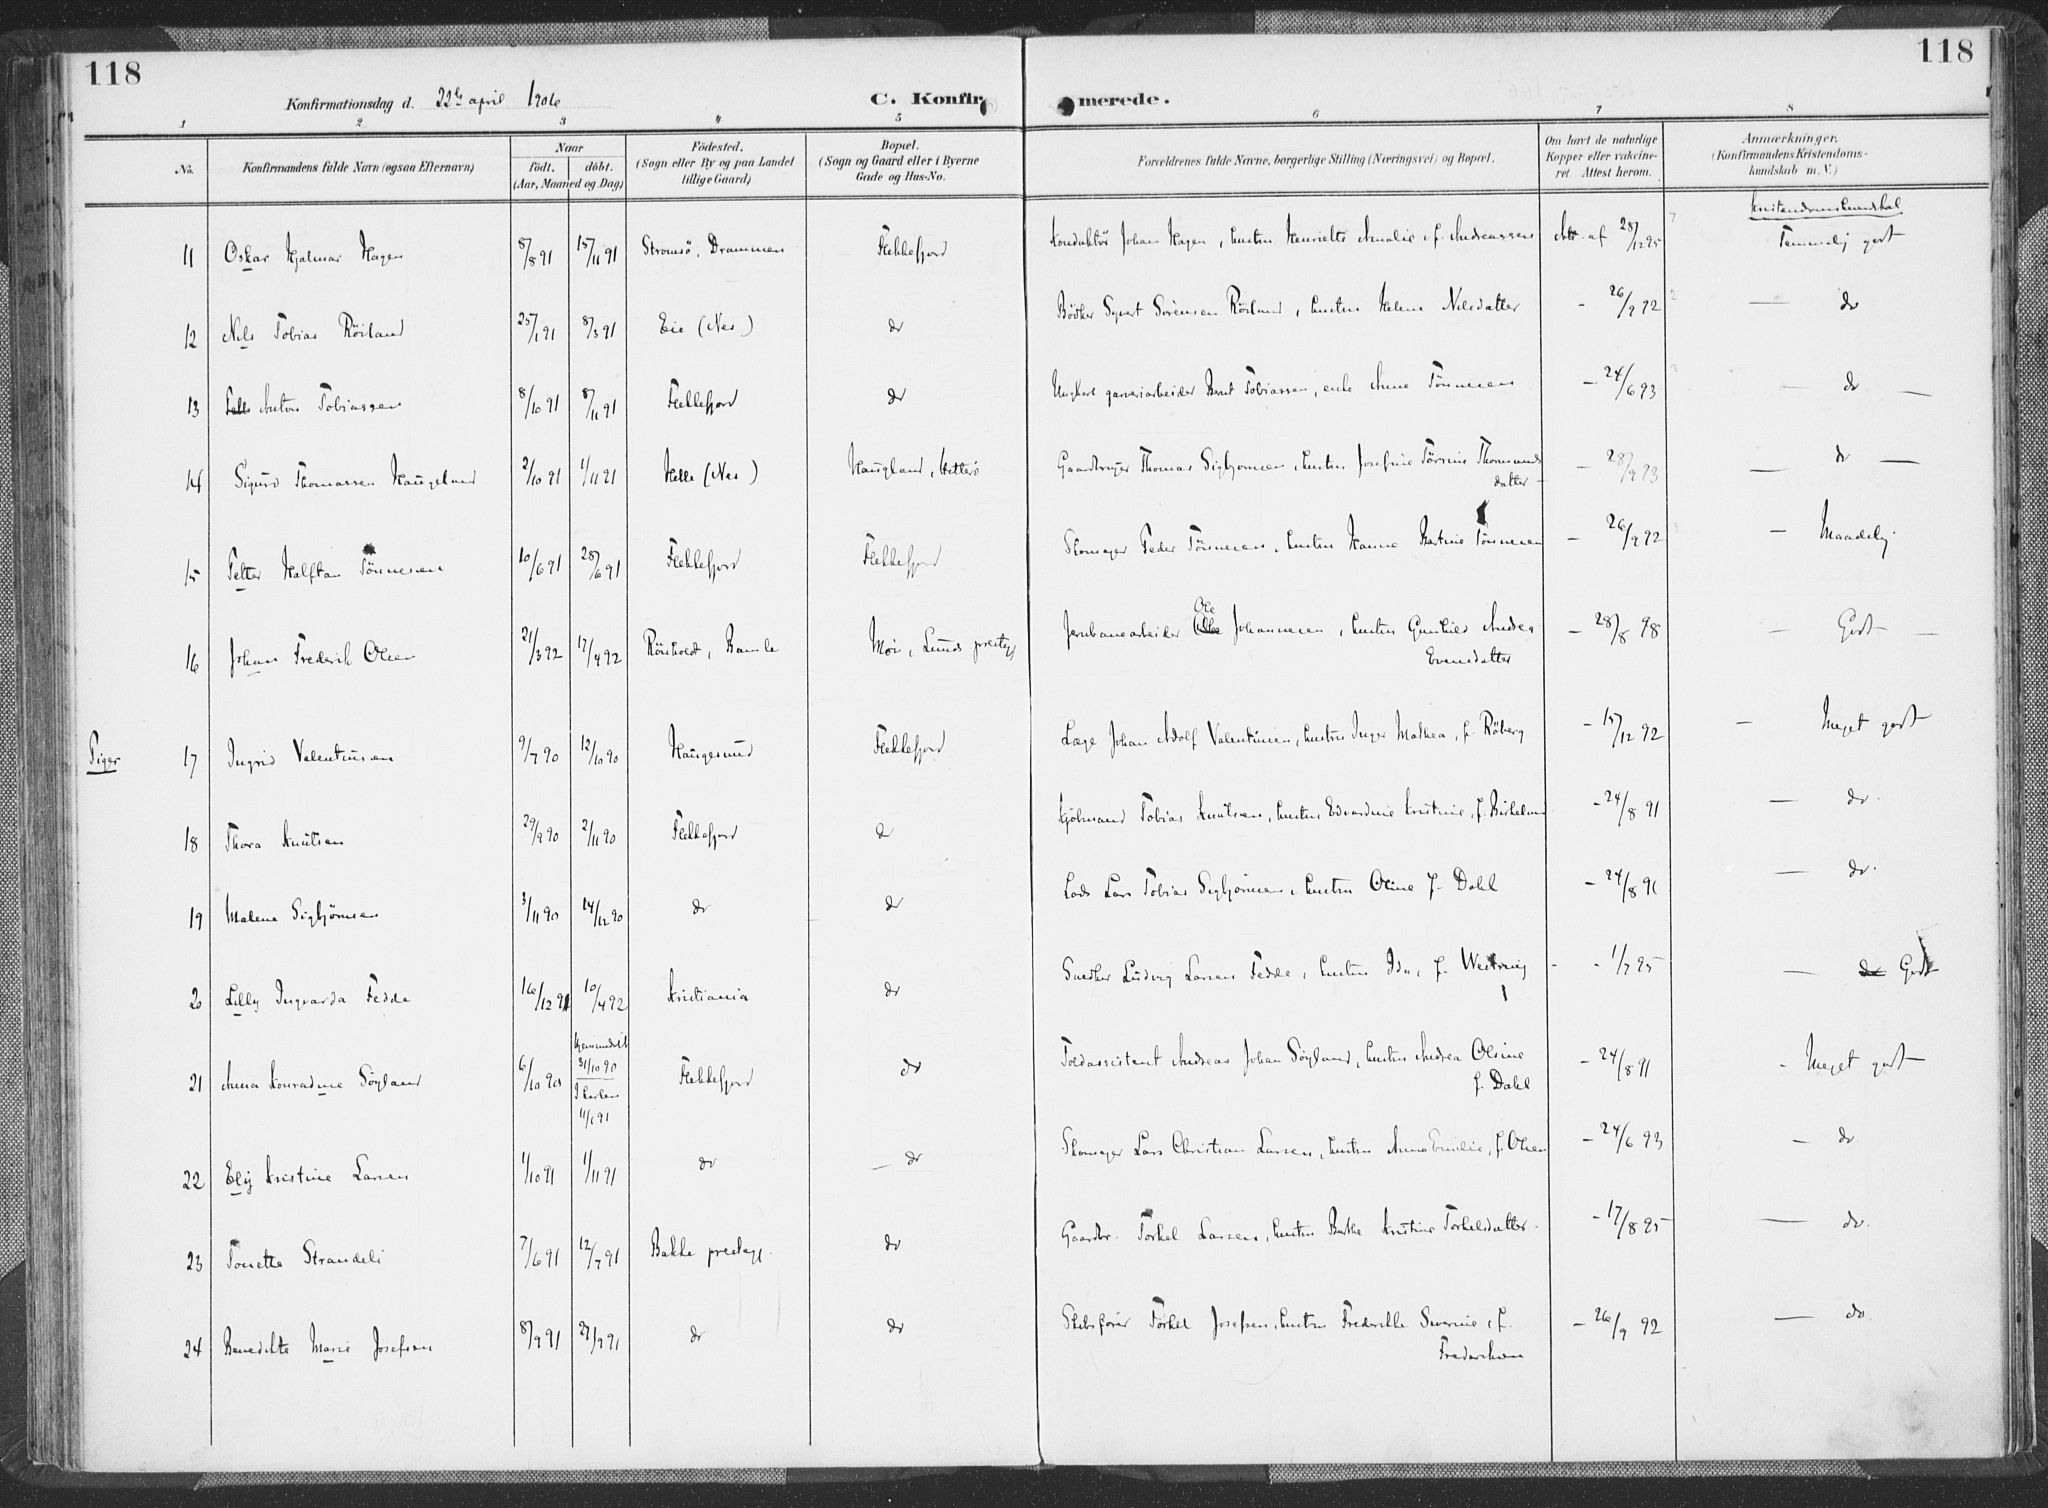 118
118
Konfirmationsdag d. 22de april 1906
C. Konfirmerede.
1 2 3 4 5 6 7 8
No.
Konfirmandens fulde Navn (ogsaa Efternavn)
Naar
födt. döbt.
(Aar, Maaned og Dag)
Födested.
(Sogn eller By og paa Landet
tillige Gaard)
Bopæl.
(Sogn og Gaard eller i Byerne
Gade og Hus-No.
Forældrenes fulde Navne, borgerlige Stilling (Næringsvei) og Bopæl.
Om havt de naturlige
Kopper eller vakcine-
ret. Attest herom.
Anmærkninger.
(Konfirmandens Kristendoms-
kundskab m. V.)
Kristendomskundskab
11 Oskar Hjalmar Hagen 8/8 91 15/11 91 Strømsö, Drammen Flekkefjord Konduktör Johan Hagen, hustru Henriette Amalie f. Andreassen Att. af 28/12 95 Temmelig godt
12 Nils Tobias Röiland 25/1 91 8/3 91 Eie (Nes) do Bödker Syvert Sörensen Röiland, hustru Helene Nilsdatter - 26/9 92 — do
13 Anton Tobiassen 8/10 91 8/11 91 Flekkefjord do Ungkarl garveriarbeider Bernt Tobiassen, enke Anne Tönnesen - 24/6 93 — do —
14 Sigurd Thomassen Haugeland 2/10 91 1/11 91 Helle (Nes) Haugland, Hitterö Gaardbruger Thomas Sigbjornsen, hustru Josefine Törrine Thommas
datter - 28/9 93 — do —
15 Petter Halfdan Tönnesen 10/6 91 28/6 91 Flekkefjord Flekkefjord Skomager Peder Tönnesen, hustru Hanne Bertine Tönnesen - 26/9 92 — Maadelig
16 Johan Frederik Olsen 21/3 92 17/4 92 Rönholdt, Bamle Moi, Lunds prestegj Jernbanearbeider Ole Johannesen, hustru Gunhild Andrea
Evensdatter - 28/8 98 — Godt —
Piger
17 Ingrid Valentinsen 9/7 90 12/10 90 Haugesund Flekkefjord Læge Johan Adolf Valentinsen, hustru Inger Mathea, f. Röberg - 15/12 92 — Meget godt
18 Thora Knutsen 29/9 90 2/11 90 Flekkefjord do Kjöbmand Tobias Knutsen, hustru Edvardine Kristine, f. Birkeland - 24/8 91 — do.
19 Malene Sigbjörnsen 3/11 90 14/12 90 do do Lods Lars Tobias Sigbjörnsen, hustru Oline f. Dahl - 24/8 91 — do.
20 Lilly Ingvarda Fedde 16/12 91 10/4 92 Kristiania do Snedker Ludvig Larsen Fedde, hustru Ida, f. Westring - 1/7 95 — do Godt
21 Anna Konradine Söyland 6/10 90 Hjemmedöbt
31/10 90
I kirken
11/1 91 Flekkefjord do Toldassistent Andreas Johan Söyland, hustru Andrea Olsine
f. Dahl - 24/8 91 - Meget godt
22 Elly Kristine Larsen 1/10 91 1/11 91 do — do Skomager Lars Christian Larsen, hustru Anna Emilie, f. Olsen - 24/6 93 — do
23 Tonette Strandeli 7/6 91 12/7 91 Bakke prestegj. do Gaardbr. Torkel Larsen, hustru Berthe Kristine Torkelsdatter - 17/8 95 — do.
24 Benedikte Marie Josefsen 8/9 91 27/9 91 do do Skibsförer Torkel Josefsen, hustru Fredrikke Severine, f.
Frederiksen - 26/9 92 — do.